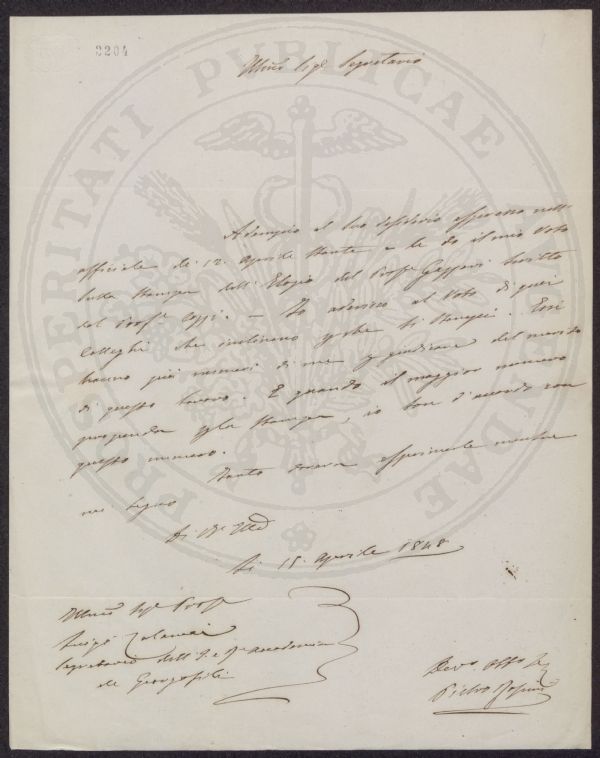 2204
Illmo Sigr Segretario
Adempio al suo desiderio espresso nell'
officiale de' 12 Aprile stante e le do il mio Voto
sulla stampa dell' Elogio del Profr Gazzeri scritto
dal Profr Cozzi. — Io aderisco al Voto di quei
Colleghi che inclinano perché si stampi. Essi
hanno più numeri di me per giudicare del merito
di questo lavoro. E quando il maggior numero
propenda per la stampa, io son d'accordo con
questo numero.
Tanto doveva esprimerle mentre
mi segno
Di
Di 15 Aprile 1848
Illmo Sigr Profr
Luigi
Segretario dell' I. e R. Accademia
de Georgofili
Devo Obbo
Pietro
PROSPERITATI PUBLICAE AUGENDAE